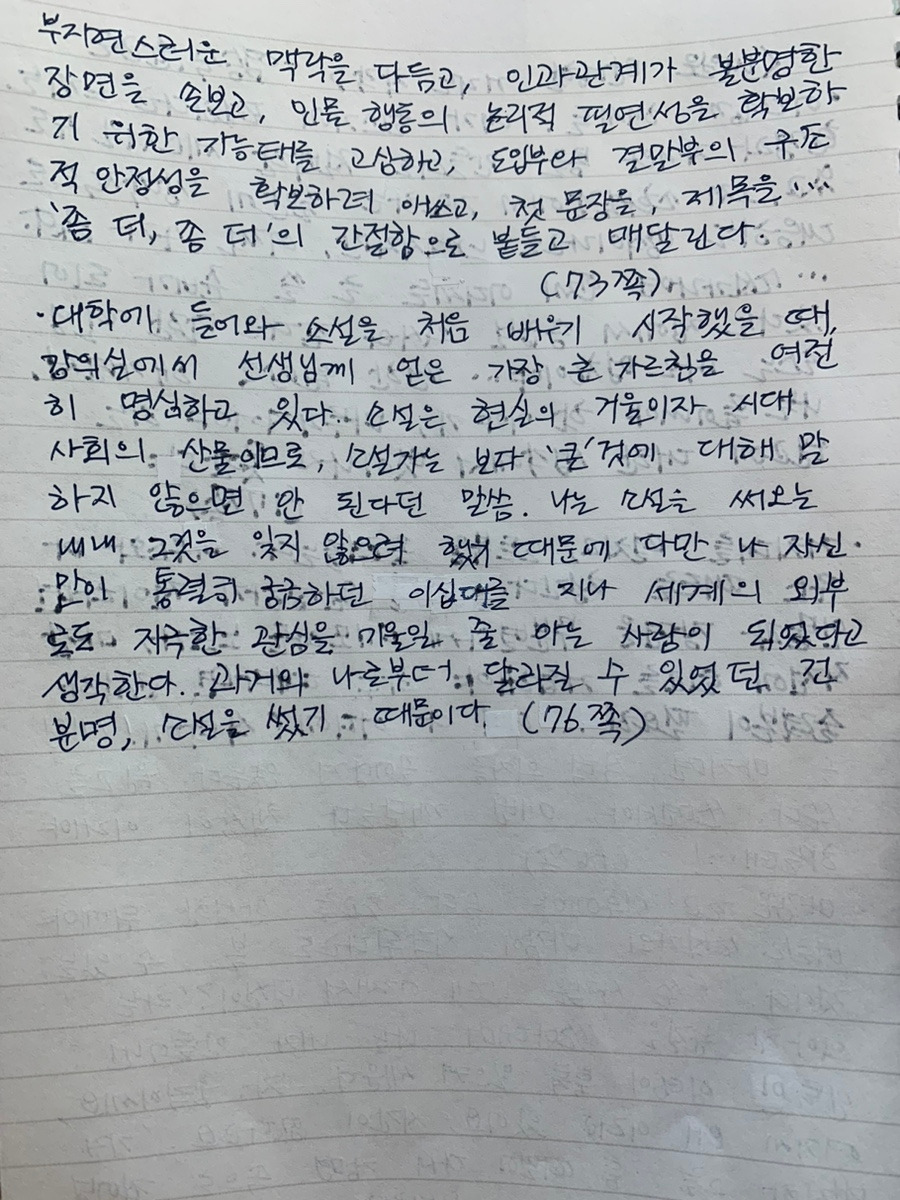 부자연스러운 맥락을 다듬고, 인과관계가 불분명한
장면을 손보고, 인물 행동의 논리적 필연성을 확보하
기 위한 가능태를 고심하고, 도입부와 결말부의 구조
적 안정성을 확보하려 애쓰고, 첫 문장을, 제목을…
'좀 더, 좀 더'의 간절함으로 붙들고 매달린다.
(73쪽)
· 대학에 들어와 소설을 처음 배우기 시작했을 때,
강의실에서 선생님께 얻은 가장 큰 가르침을 여전
히 명심하고 있다. 소설은 현실의 거울이자 시대
사회의 산물이므로, 소설가는 보다 '큰' 것에 대해 말
하지 않으면 안 된다던 말씀. 나는 소설을 써오는
내내 그것을 잊지 않으려 했기 때문에 다만 나 자신
만이 통렬히 궁금하던 이십대를 지나 세계의 외부
로도 지극한 관심을 기울일 줄 아는 사람이 되었다고
생각한다. 과거의 나로부터 달라질 수 있었던 건
분명, 소설을 썼기 때문이다. (76쪽)